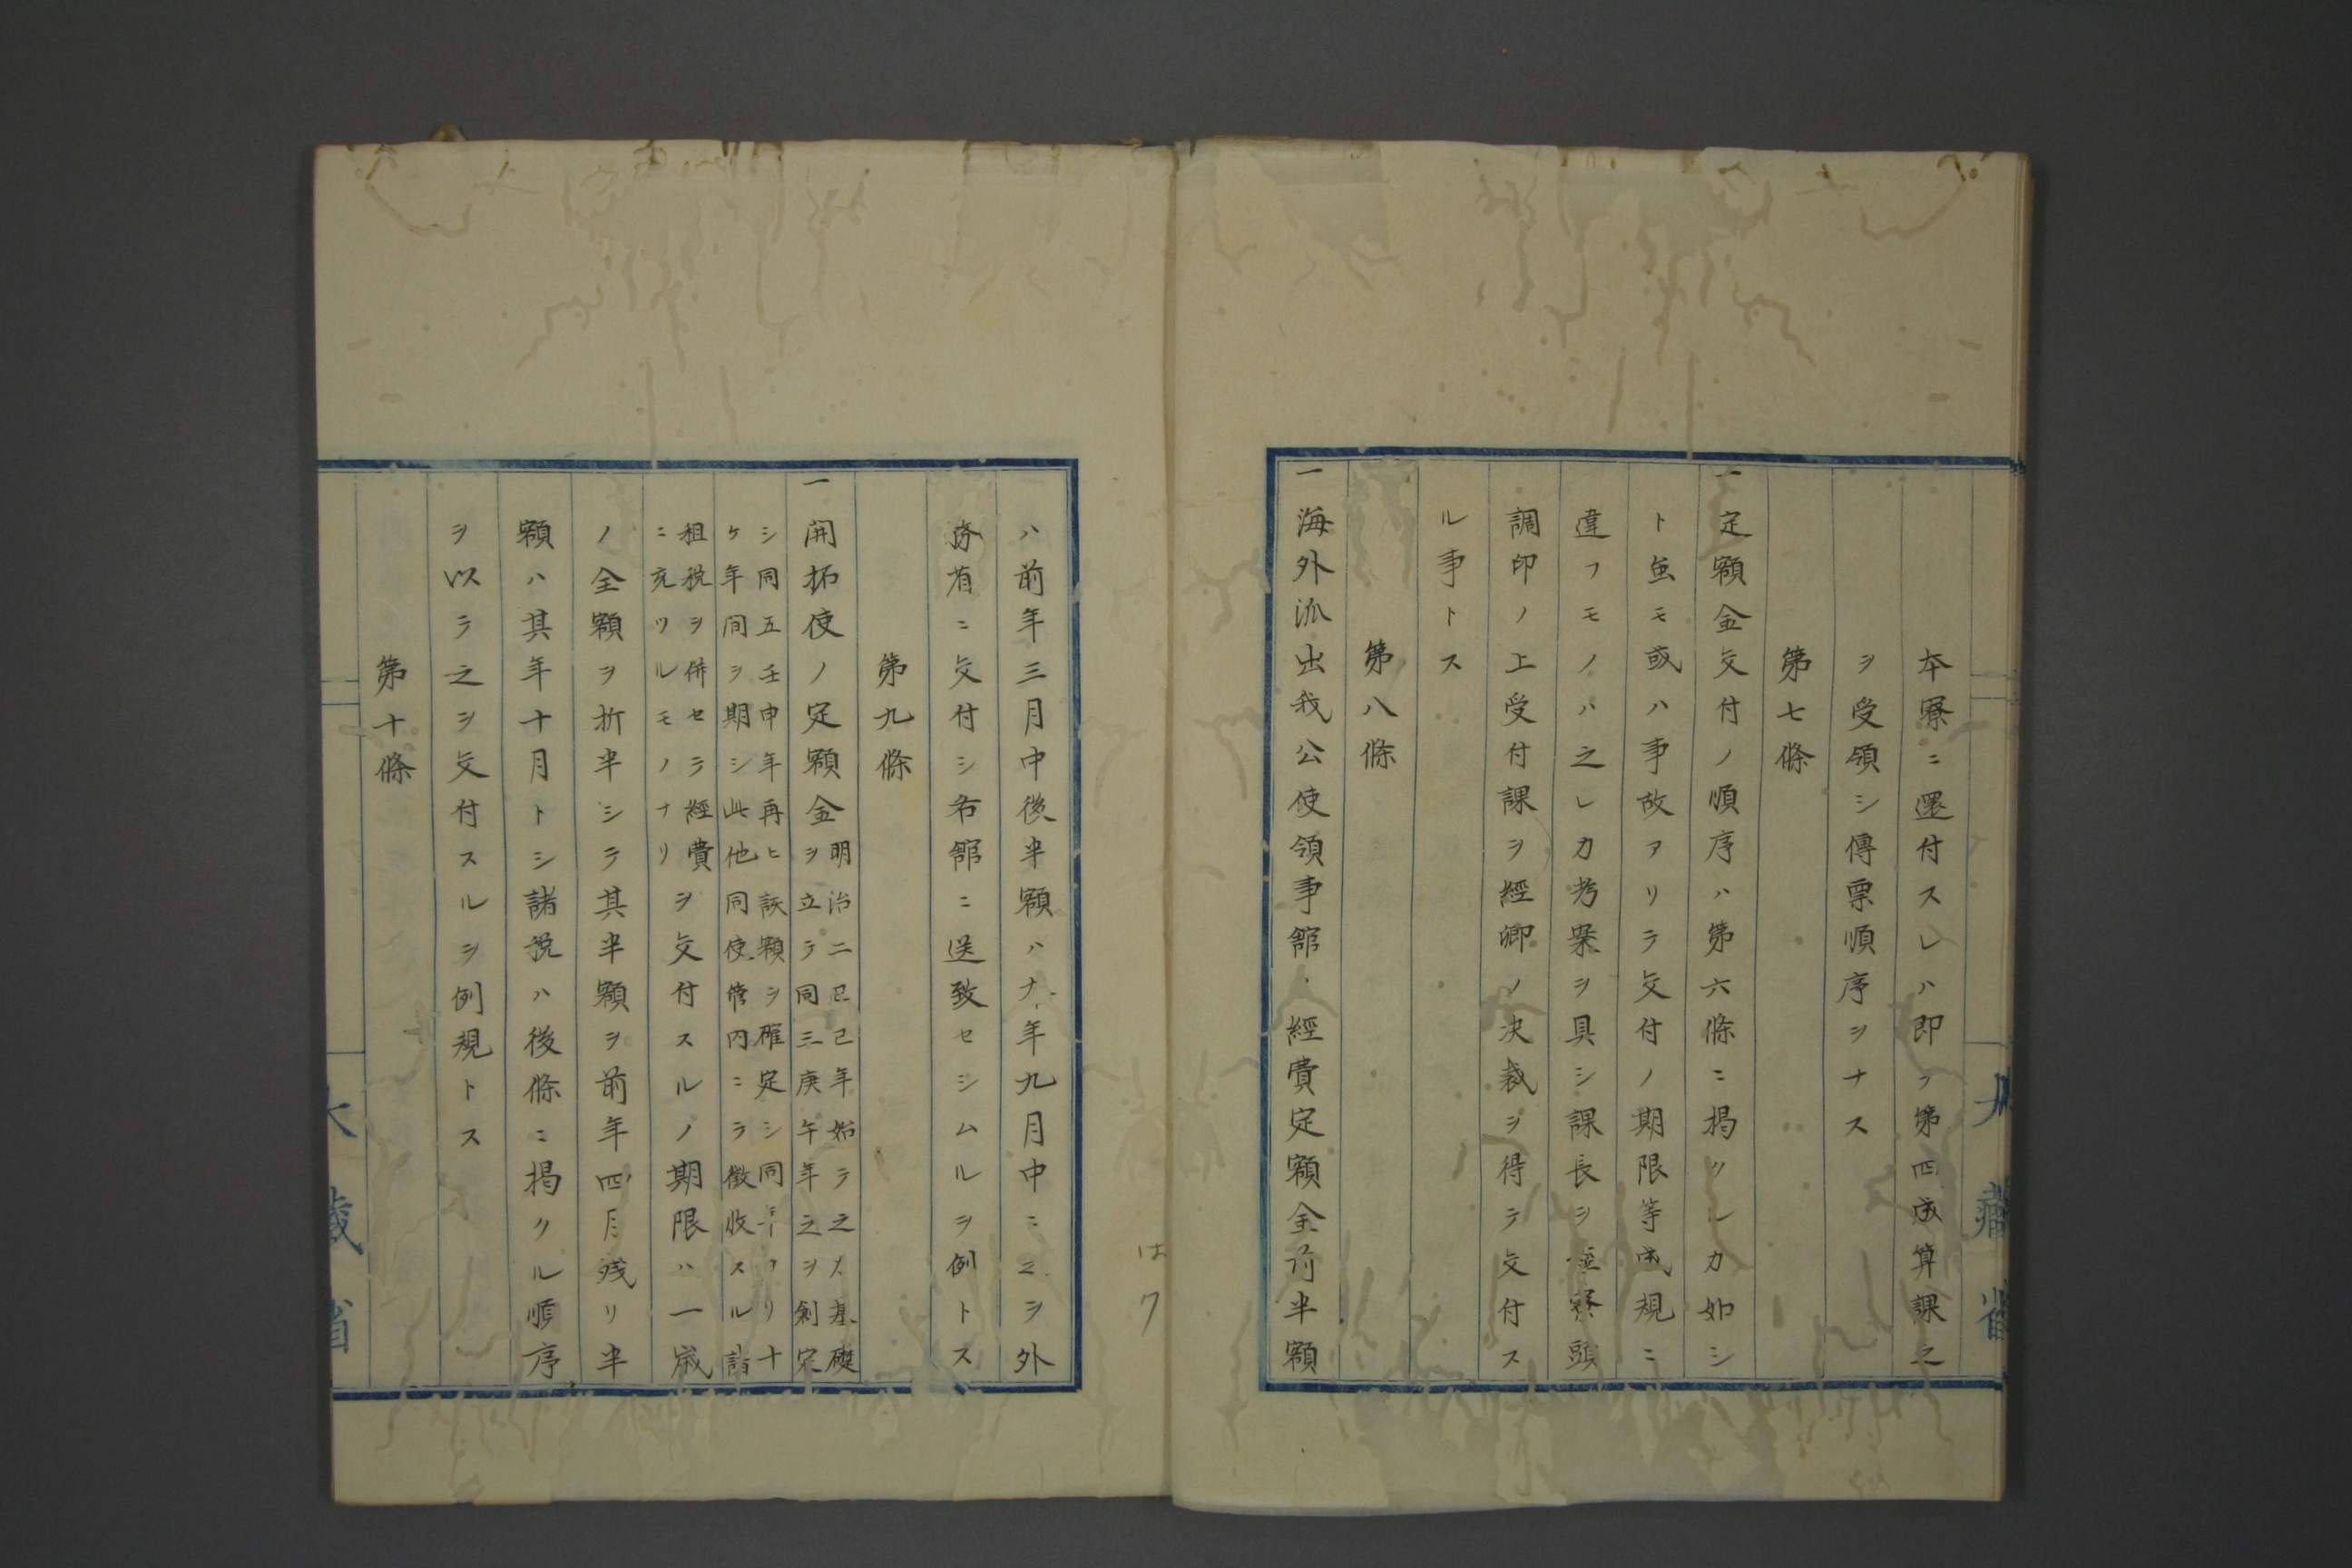 本寮ニ還付スレハ即ヶ第四成算課之
ヲ受領シ傳票順序ヲナス
第七條
一定額金交付ノ順序ハ第六條ニ掲クルカ如シ
ト虽モ或ハ事故アリテ交付ノ期限等成規ニ
違フモノハ之レカ考案ヲ具シ課長ヲ經寮頭
調印ノ上受付課ヲ經卿ノ决裁ヲ得テ交付ス
ル事トス
第八條
一海外派出我公使領事館ノ經費定額金前半額
ハ前年三月中後半額ハ年九月中ニ之ヲ外
務省ニ交付シ各館ニ送致セシムルヲ例トス
第九條
一開拓使ノ定額金
明治二己巳年始テ之カ基礎
ヲ立テ同三庚午年之ヲ創定
シ同五壬申年再ヒ該額ヲ確定シ同年ヨリ十
ケ年間ヲ期シ此他同使管内ニテ徴收スル諸
租税ヲ併セテ經費
ニ充ツルモノナリ
ヲ交付スルノ期限ハ一歳
ノ全額ヲ折半シテ其半額ヲ前年四月残リ半
額ハ其年十月トシ諸税ハ後條ニ掲クル順序
ヲ以テ之ヲ交付スルヲ例規トス
第十條
大藏省
大藏省
は
7